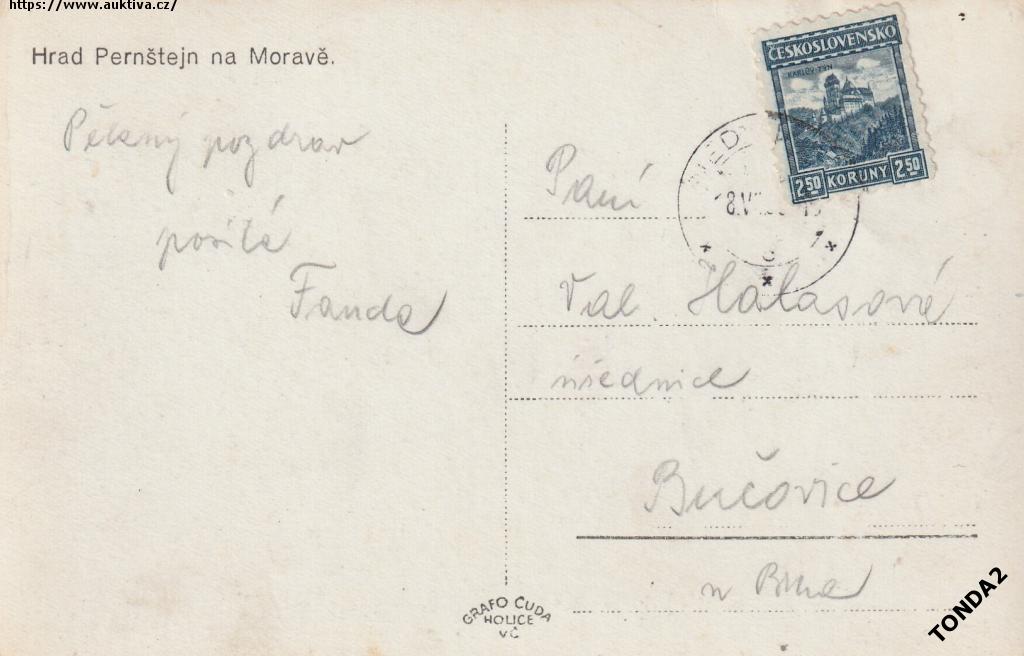 https://www.auktiva.cz/
Hrad Pernštejn na Moravě.
Pěkný pozdrav
posílá
Fanda
ČESKOSLOVENSKO
KARLŮV TÝN
2.50 KORUNY 2.50
Paní
Val. Halasová
úřednice
Bučovice
u Brna
GRAFO ČUDA
HOLICE
VČ
TONDA2